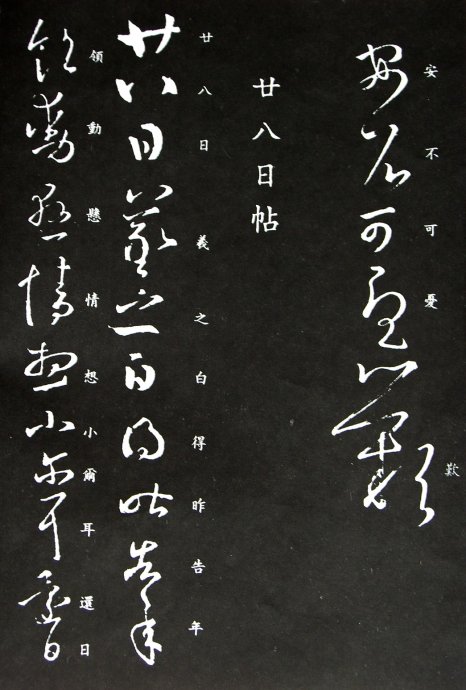 安不可憂歎
廿八日帖
廿八日羲之白得昨告年
領動懸情想小爾耳還日